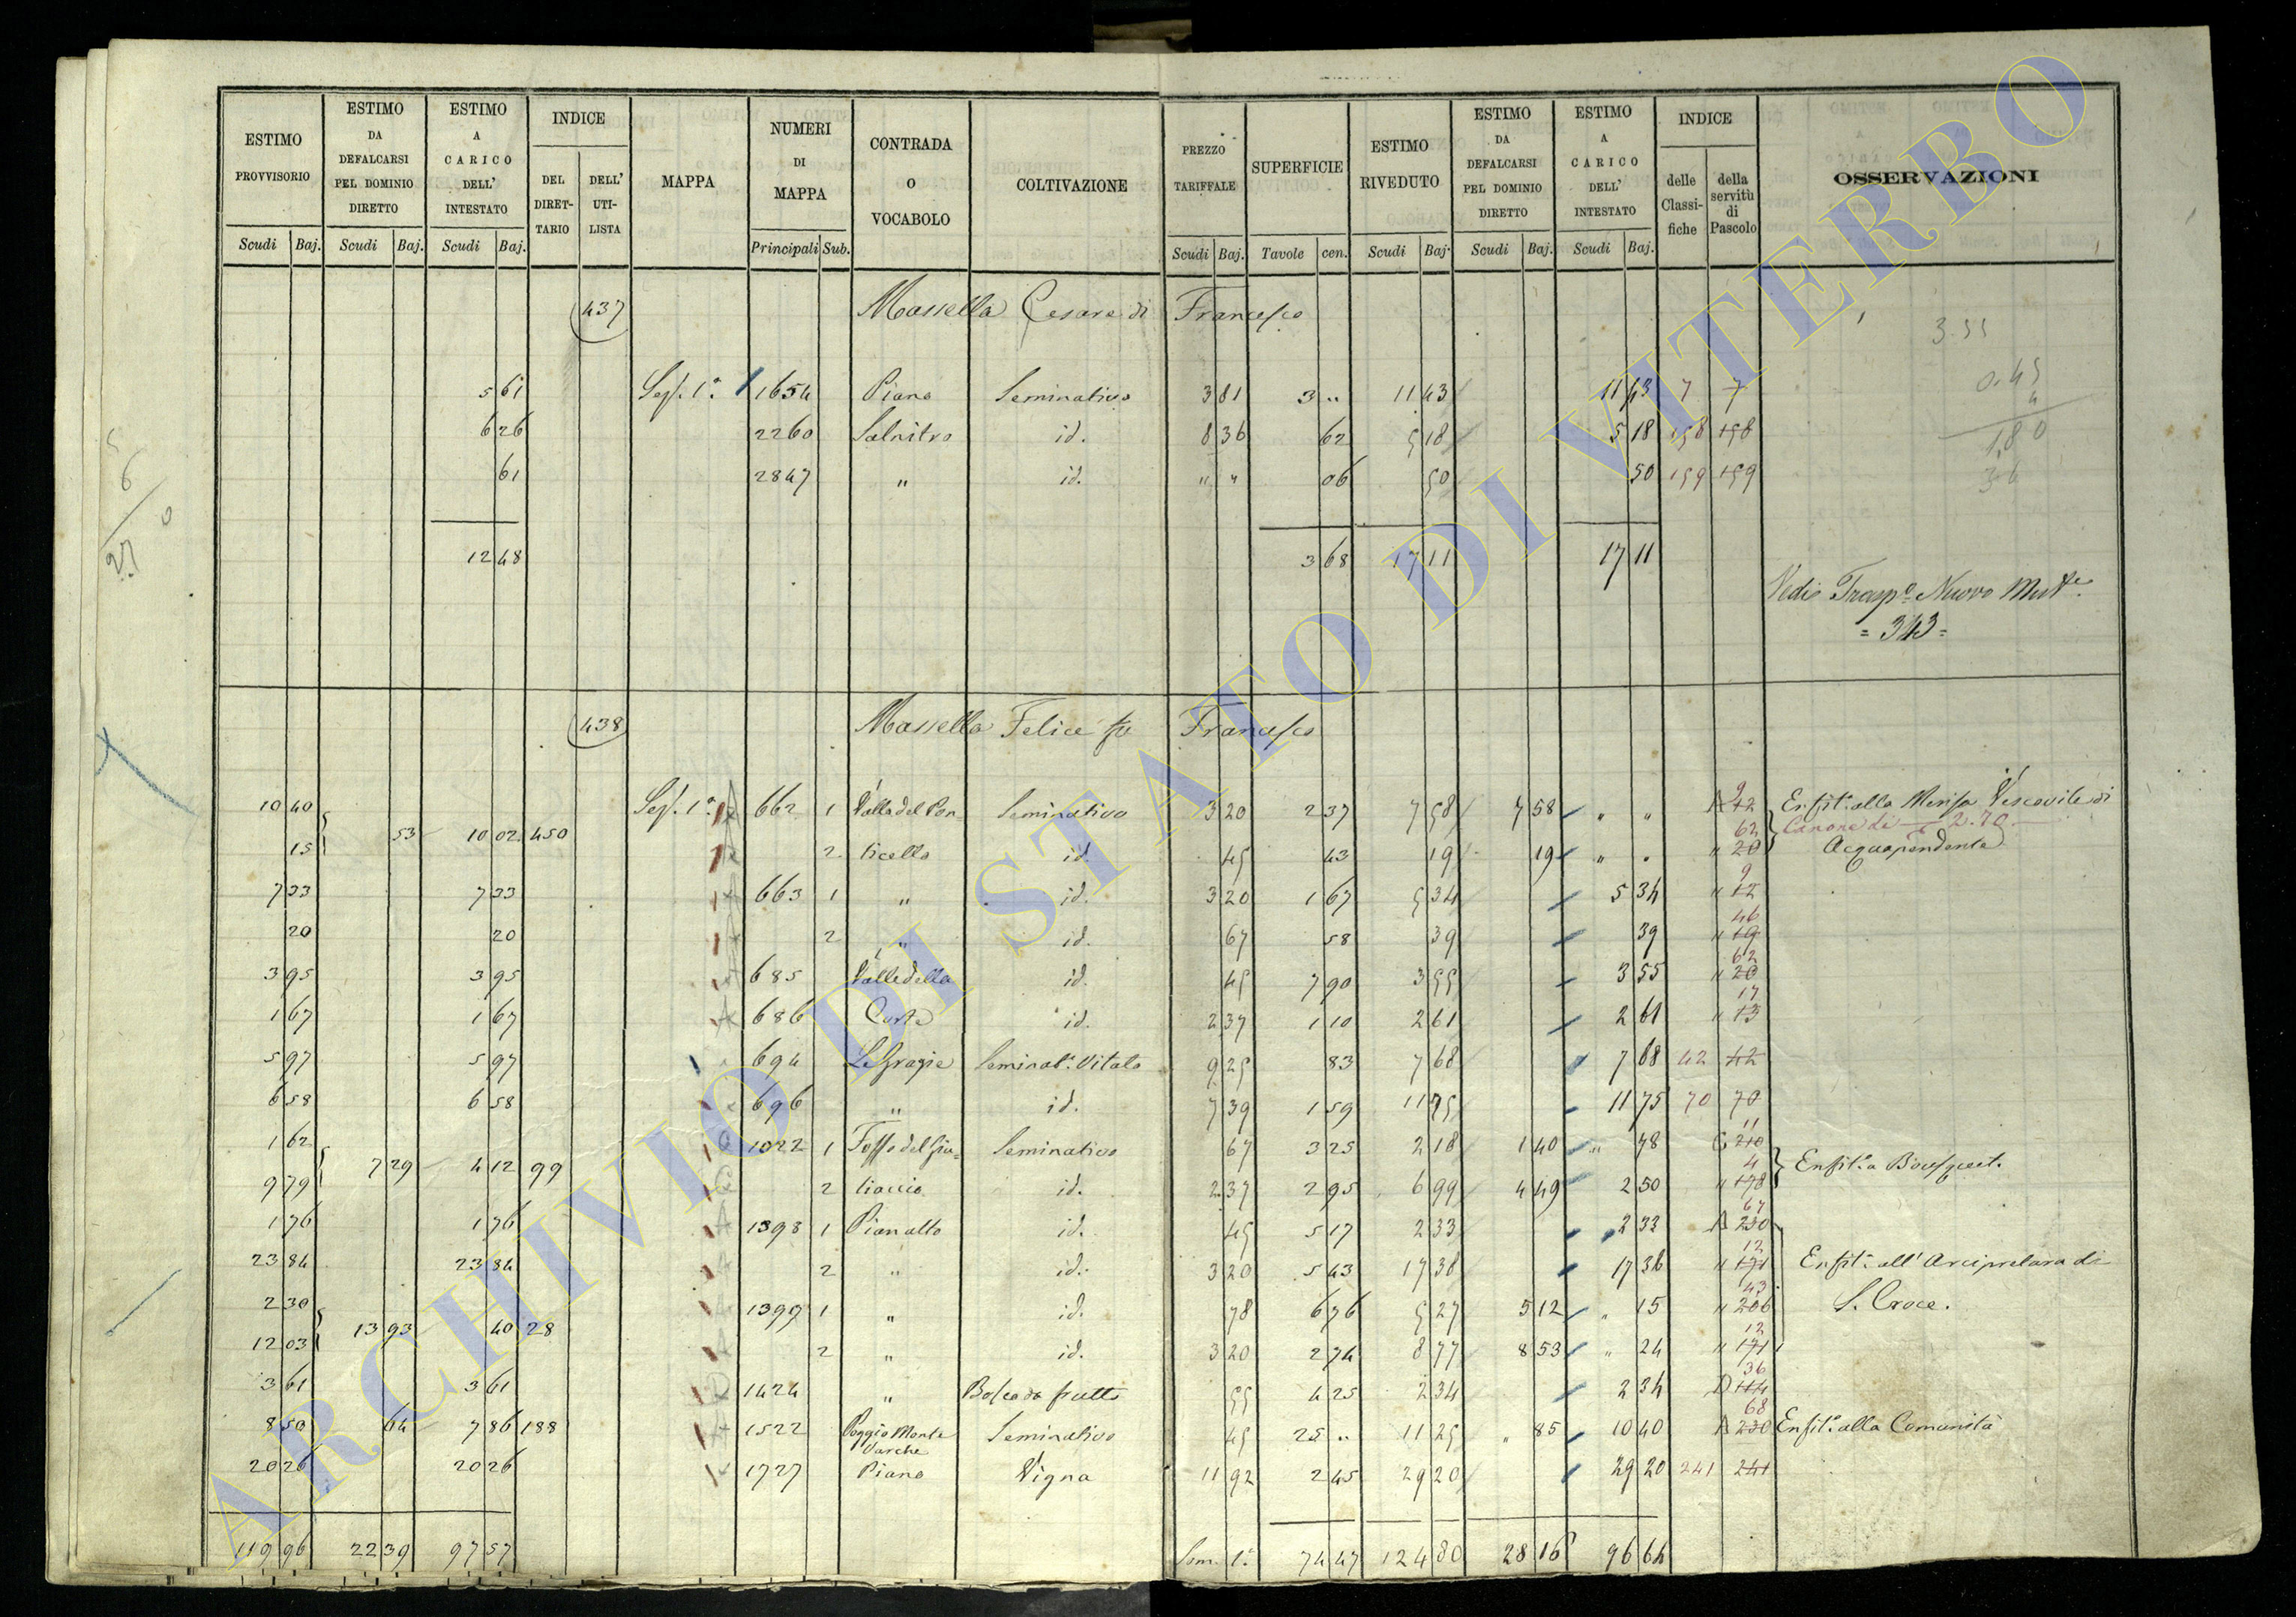 ESTIMO PROVVISORIO Scudi Baj. | ESTIMO DA DEFALCARSI PEL DOMINIO DIRETTO Scudi Baj. | ESTIMO A CARICO DELL' INTESTATO Scudi Baj. | INDICE DEL DIRET-TARIO | DELL' UTI-LISTA | MAPPA | NUMERI DI MAPPA Principali Sub. | CONTRADA O VOCABOLO | COLTIVAZIONE | PREZZO TARIFFALE Scudi Baj. | SUPERFICIE Tavole cen. | ESTIMO RIVEDUTO Scudi Baj. | ESTIMO DA DEFALCARSI PEL DOMINIO DIRETTO Scudi Baj. | ESTIMO A CARICO DELL' INTESTATO Scudi Baj. | INDICE delle Classi-fiche | della servitù di Pascolo | OSSERVAZIONI
437 Massella Cesare di Francesco
3.55
5 61 Sez. 1ª 1654 Piano Seminativo 3 81 3 " 11 43 11 43 7 7
0.45
4
6 26 2260 Salnitro id. 8 36 62 5 18 5 18 158 158
1,80
61 2847 " id. " " 06 50 50 159 159
36
12 48 3 68 17 11 17 11
6
0
27
Vedi Trasp.e Nuovo Mut.e
= 343 =
438 Massella Felice fu Francesco
10 40 Sez. 1ª 662 1 Valle del Pon Seminativo 3 20 2 37 7 58 7 58 " " A 12 9 Enfit. alla Mensa Vescovile di
53 10 02 450 Canone di 2.70
15 2 ticello id. 45 43 19 19 " " " 20 62 Acquapendente
7 33 7 33 663 1 " id. 3 20 1 67 5 34 5 34 " 12 9
20 20 2 " id. 67 58 39 39 " 19 46
3 95 3 95 685 Valle della id. 45 7 90 3 55 3 55 " 20 62
1 67 1 67 686 Corte id. 2 37 1 10 2 61 2 61 " 13 17
5 97 5 97 694 Le Grazie Seminat.º Vitato 9 25 83 7 68 7 68 42 42
6 58 6 58 696 " id. 7 39 1 59 11 75 11 75 70 70
1 62 1022 1 Fosso del Giu= Seminativo 67 3 25 2 18 1 40 " 78 C 210 11
7 29 4 12 99 Enfit. a Bousquet
9 79 2 id. 2 37 2 95 6 99 4 49 2 50 " 178 4
1 76 1 76 1398 1 Pianalto id. 45 5 17 2 33 2 33 A 230 67
23 84 23 84 2 " id. 3 20 5 43 17 38 17 38 " 171 12 Enfit. all' Arcipretura di
2 30 1399 1 " id. 78 6 76 5 27 5 12 " 15 " 206 43 S. Croce.
13 93 40 28
12 03 2 " id. 3 20 2 74 8 77 8 53 " 24 " 171 12
3 61 3 61 1424 " Bosco da frutto 55 4 25 2 34 2 34 D 114 36
8 50 64 7 86 188 1522 Poggio Monte Varche Seminativo 45 25 " 11 25 " 85 10 40 A 230 68 Enfit. alla Comunità
20 26 20 26 1727 Piano Vigna 11 92 2 45 29 20 29 20 241 241
119 96 22 39 97 57 Som. 1ª 74 47 124 80 28 16 96 64
ARCHIVIO DI STATO DI VITERBO